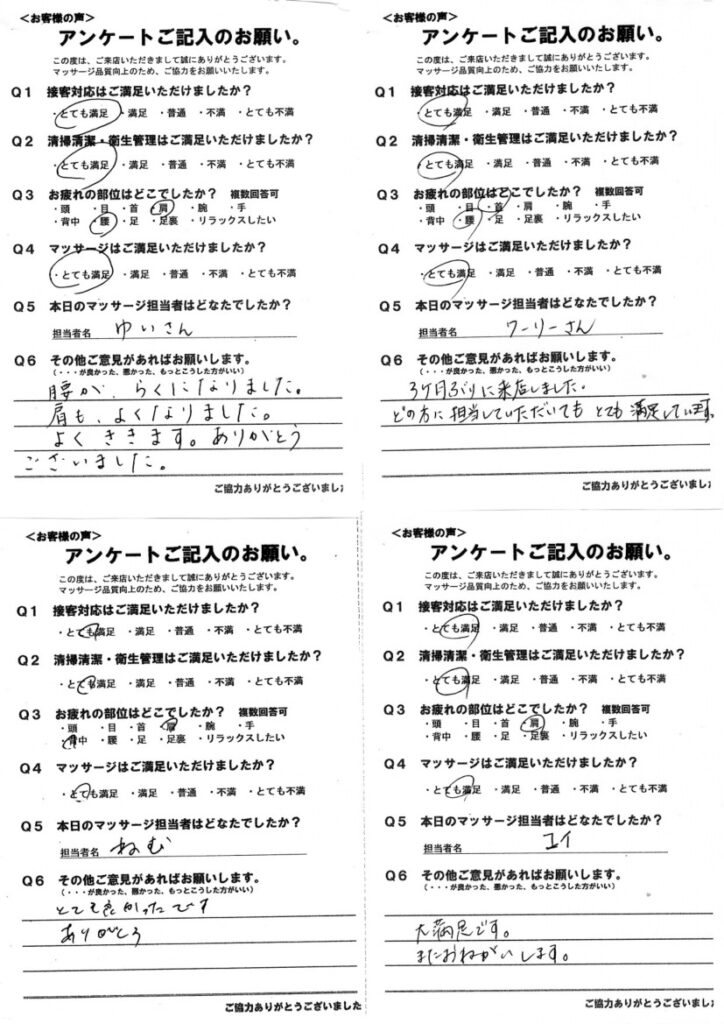 ＜お客様の声＞
アンケートご記入のお願い。
この度は、ご来店いただきまして誠にありがとうございます。
マッサージ品質向上のため、ご協力をお願いいたします。
Q1 接客対応はご満足いただけましたか？
・とても満足 ・満足 ・普通 ・不満 ・とても不満
Q2 清掃清潔・衛生管理はご満足いただけましたか？
・とても満足 ・満足 ・普通 ・不満 ・とても不満
Q3 お疲れの部位はどこでしたか？ 複数回答可
・頭 ・目 ・首 ・肩 ・腕 ・手
・背中 ・腰 ・足 ・足裏 ・リラックスしたい
Q4 マッサージはご満足いただけましたか？
・とても満足 ・満足 ・普通 ・不満 ・とても不満
Q5 本日のマッサージ担当者はどなたでしたか？
担当者名 ゆいさん
Q6 その他ご意見があればお願いします。
（・・・が良かった、悪かった、もっとこうした方がいい）
腰が、らくになりました。
肩も、よくなりました。
よくききます。ありがとう
ございました。
ご協力ありがとうございまし
＜お客様の声＞
アンケートご記入のお願い。
この度は、ご来店いただきまして誠にありがとうございます。
マッサージ品質向上のため、ご協力をお願いいたします。
Q1 接客対応はご満足いただけましたか？
・とても満足 ・満足 ・普通 ・不満 ・とても不満
Q2 清掃清潔・衛生管理はご満足いただけましたか？
・とても満足 ・満足 ・普通 ・不満 ・とても不満
Q3 お疲れの部位はどこでしたか？ 複数回答可
・頭 ・目 ・首 ・肩 ・腕 ・手
・背中 ・腰 ・足 ・足裏 ・リラックスしたい
Q4 マッサージはご満足いただけましたか？
・とても満足 ・満足 ・普通 ・不満 ・とても不満
Q5 本日のマッサージ担当者はどなたでしたか？
担当者名 ワーリーさん
Q6 その他ご意見があればお願いします。
（・・・が良かった、悪かった、もっとこうした方がいい）
3ケ月ぶりに来店しました。
どの方に担当していただいても とても満足しています。
ご協力ありがとうございまし
＜お客様の声＞
アンケートご記入のお願い。
この度は、ご来店いただきまして誠にありがとうございます。
マッサージ品質向上のため、ご協力をお願いいたします。
Q1 接客対応はご満足いただけましたか？
・とても満足 ・満足 ・普通 ・不満 ・とても不満
Q2 清掃清潔・衛生管理はご満足いただけましたか？
・とても満足 ・満足 ・普通 ・不満 ・とても不満
Q3 お疲れの部位はどこでしたか？ 複数回答可
・頭 ・目 ・首 ・肩 ・腕 ・手
・背中 ・腰 ・足 ・足裏 ・リラックスしたい
Q4 マッサージはご満足いただけましたか？
・とても満足 ・満足 ・普通 ・不満 ・とても不満
Q5 本日のマッサージ担当者はどなたでしたか？
担当者名 ねむ
Q6 その他ご意見があればお願いします。
（・・・が良かった、悪かった、もっとこうした方がいい）
とても良かったです
ありがとう
ご協力ありがとうございました
＜お客様の声＞
アンケートご記入のお願い。
この度は、ご来店いただきまして誠にありがとうございます。
マッサージ品質向上のため、ご協力をお願いいたします。
Q1 接客対応はご満足いただけましたか？
・とても満足 ・満足 ・普通 ・不満 ・とても不満
Q2 清掃清潔・衛生管理はご満足いただけましたか？
・とても満足 ・満足 ・普通 ・不満 ・とても不満
Q3 お疲れの部位はどこでしたか？ 複数回答可
・頭 ・目 ・首 ・肩 ・腕 ・手
・背中 ・腰 ・足 ・足裏 ・リラックスしたい
Q4 マッサージはご満足いただけましたか？
・とても満足 ・満足 ・普通 ・不満 ・とても不満
Q5 本日のマッサージ担当者はどなたでしたか？
担当者名 ユイ
Q6 その他ご意見があればお願いします。
（・・・が良かった、悪かった、もっとこうした方がいい）
大満足です。
またおねがいします。
ご協力ありがとうございまし